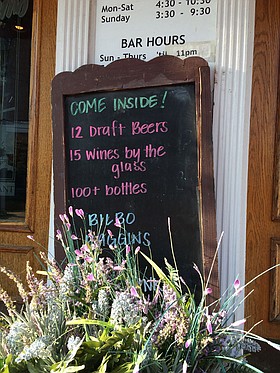 Mon-Sat 4:30 - 10:30
Sunday 3:30 - 9:30
BAR HOURS
Sun - Thurs 'til 11pm
COME INSIDE!
12 Draft Beers
15 Wines by the
glass
100+ bottles
BILBO
BAGGINS